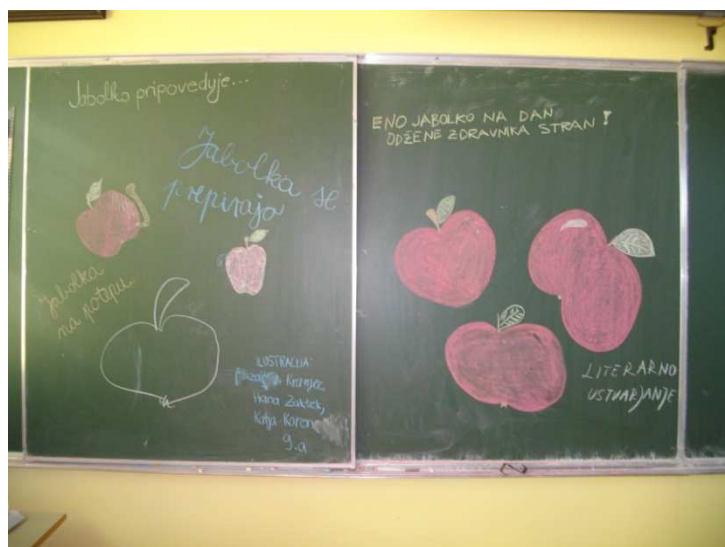 Jabolko pripoveduje...
Jabolka se
prepirajo
Jabolka
na potepu
ILUSTRACIJA:
Kranjec
Hana Zakšek,
Katja Koren
9.a
ENO JABOLKO NA DAN
ODŽENE ZDRAVNIKA STRAN!
LITERARNO
USTVARJANJE